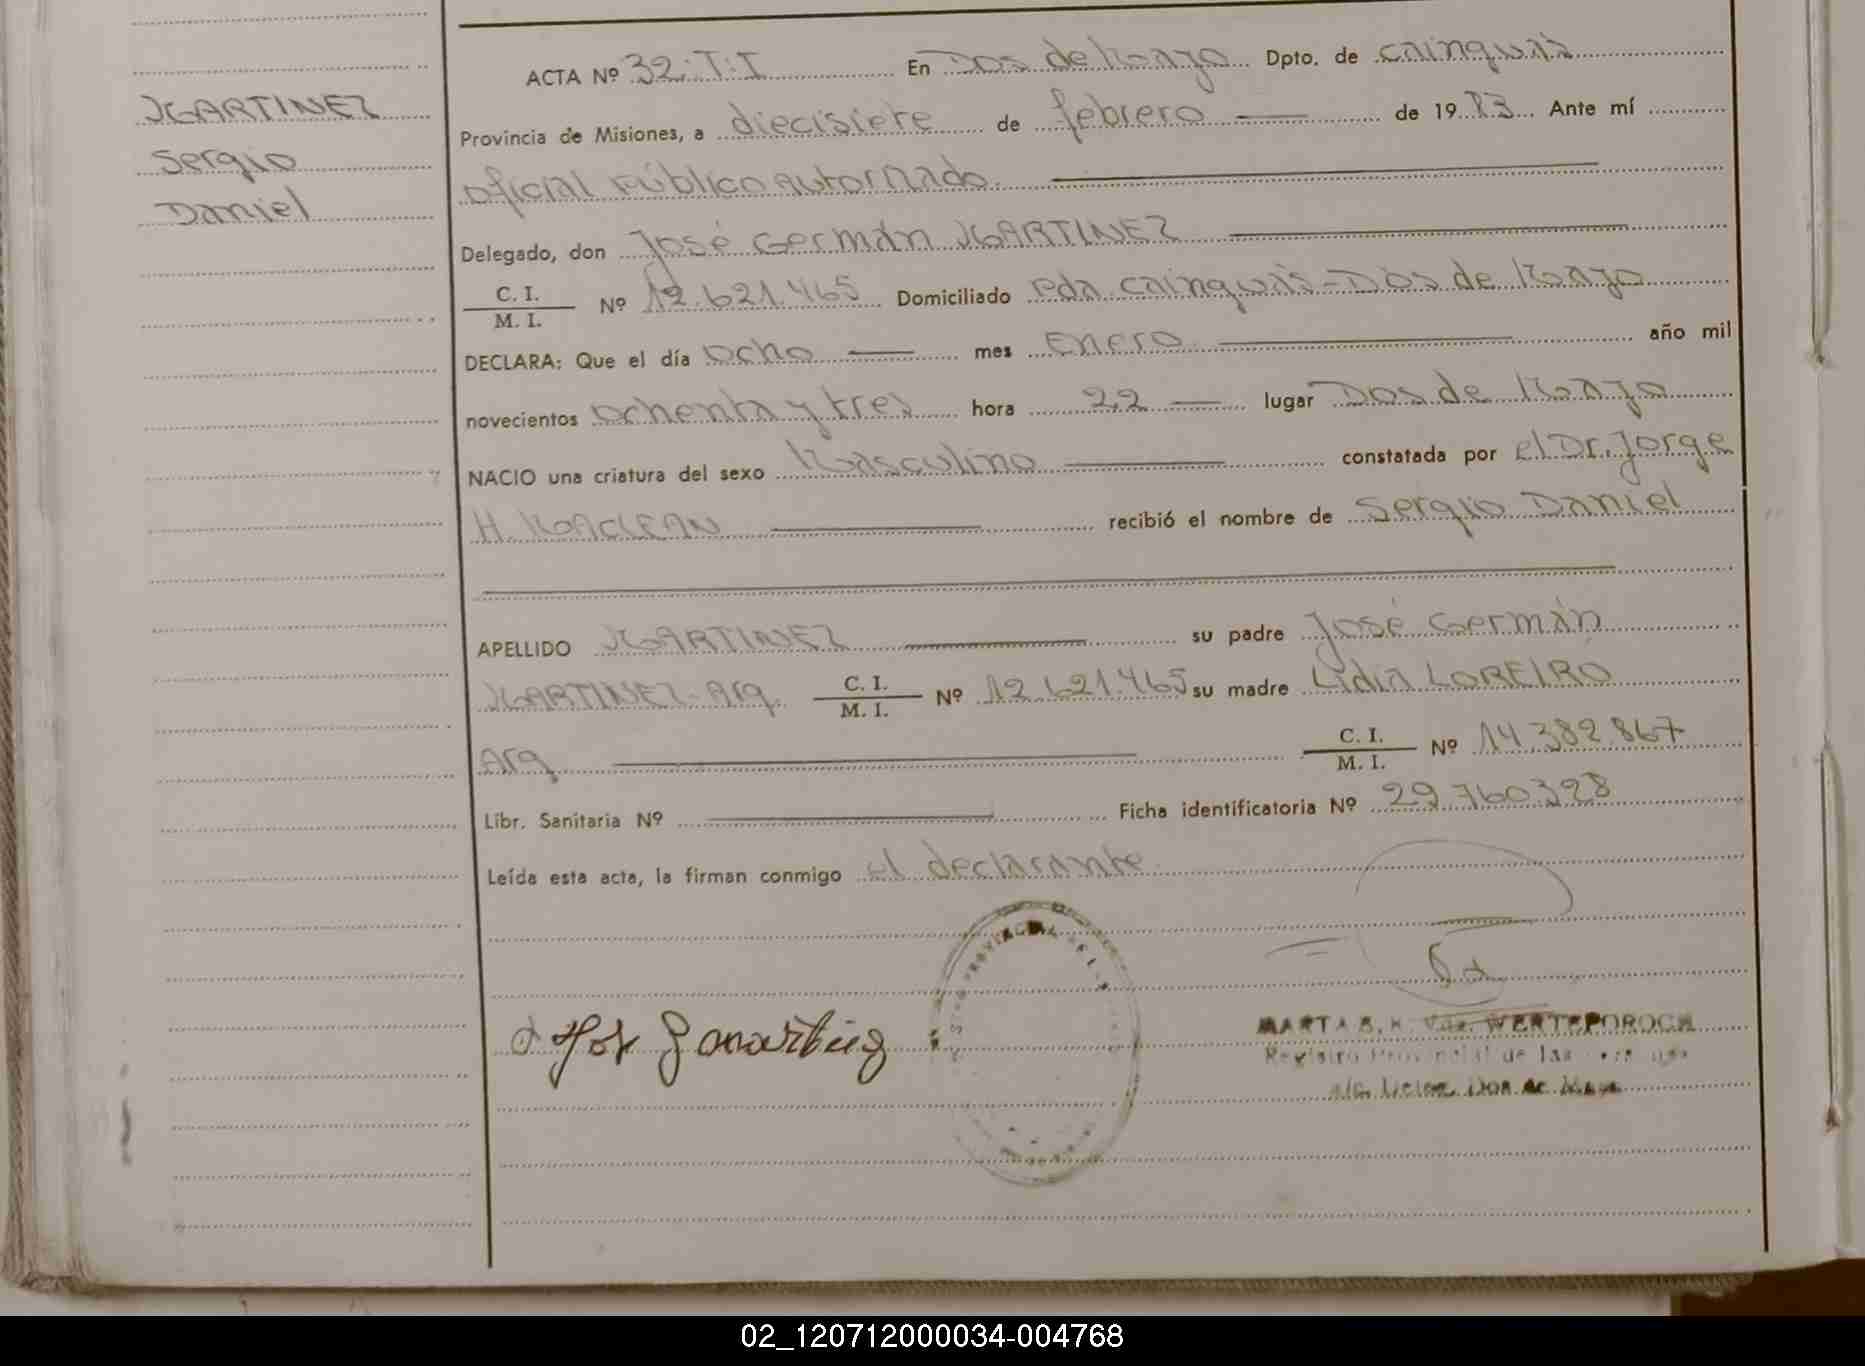 MARTINEZ
Sergio
Daniel
ACTA Nº 32: T: I En Dos de Mayo Dpto. de cainguás
Provincia de Misiones, a diecisiete de febrero de 19 83 Ante mí
oficial público autorizado
Delegado, don José Germán MARTINEZ
C. I. / M. I. Nº 12.621.465 Domiciliado Pda cainguás - Dos de Mayo
DECLARA: Que el día ocho mes Enero año mil
novecientos ochenta y tres hora 22 lugar Dos de Mayo
NACIO una criatura del sexo Masculino constatada por el Dr. Jorge
H. MACLEAN recibió el nombre de Sergio Daniel
APELLIDO MARTINEZ su padre José Germán
MARTINEZ - Arg. C. I. / M. I. Nº 12.621.465 su madre Lidia LOREIRO
Arg C. I. / M. I. Nº 14.382.867
Libr. Sanitaria Nº Ficha identificatoria Nº 29.760.328
Leída esta acta, la firman conmigo el declarante.
PROVINCIAL
MARTA B. K. Vda. WERTEPOROCH
Registro Provincial de las
Dos de Mayo
02_120712000034-004768